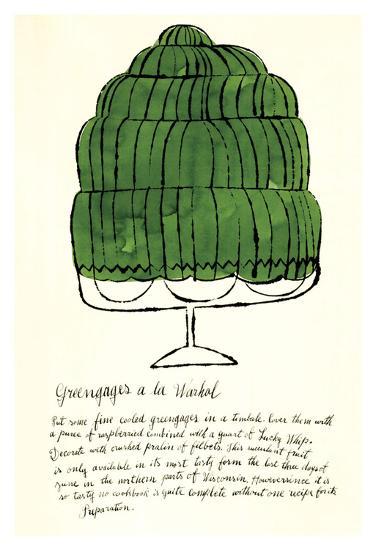 Greengages a la Warhol
Put some fine cooled greengages in a timbale cover them with
a puree of raspberried combined wild a quart of Lucky Whip.
Decorate with crushed pralin of filberts. This succulent fruit
is only available in its most tasty form the last three days of
june in the northern parts of Wisconsin. However since it is
so tasty no cookbook is quite complete without one recipe for its
Preparation.